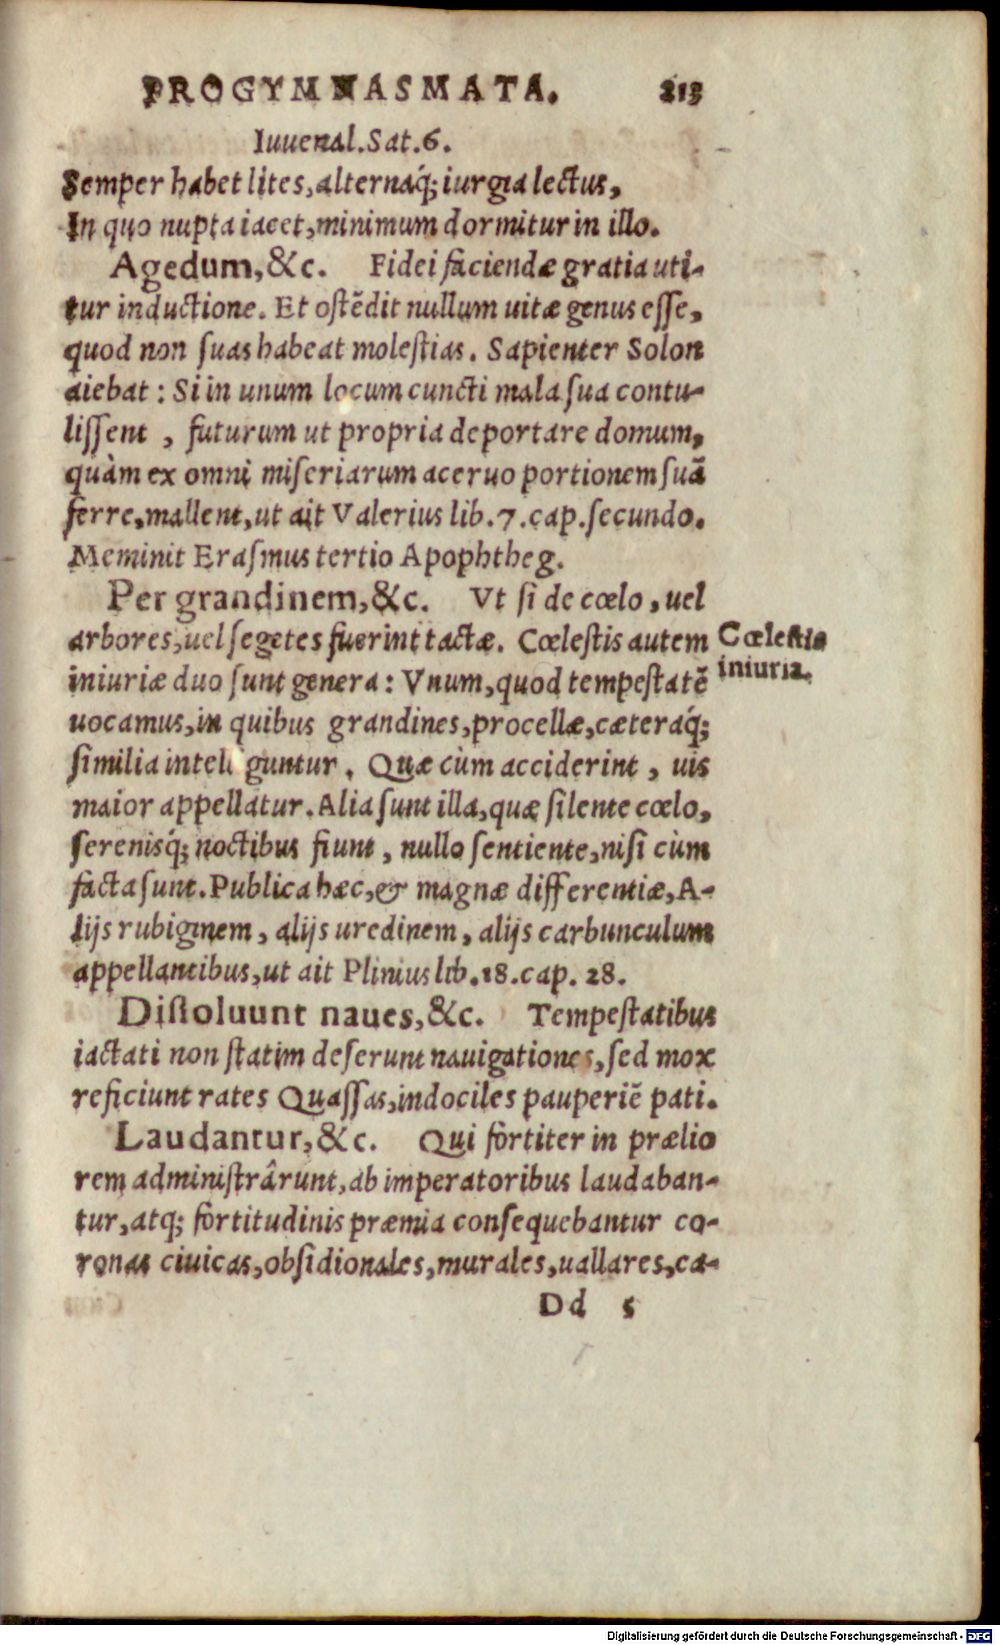 PROGYMNASMATA. 213
Iuuenal.Sat.6.
Semper habet lites,alternaq́; iurgia lectus,
In quo nupta iacet,minimum dormitur in illo.
Agedum,&c. Fidei faciendæ gratia uti-
tur inductione. Et ostẽdit nullum uitæ genus esse,
quod non suas habeat molestias. Sapienter Solon
aiebat: Si in unum locum cuncti mala sua contu-
lissent , futurum ut propria deportare domum,
quàm ex omni miseriarum aceruo portionem suã
ferre,mallent,ut ait Valerius lib.7.cap.secundo.
Meminit Erasmus tertio Apophtheg.
Per grandinem,&c. Vt si de cœlo, uel
arbores,uel segetes fuerint tactæ. Cœlestis autem
Cœlestis
iniuria.
iniuriæ duo sunt genera: Vnum,quod tempestatẽ
uocamus,in quibus grandines,procellæ,cæteraq́;
similia intelliguntur. Quæ cùm acciderint, uis
maior appellatur. Alia sunt illa,quæ silente cœlo,
serenisq́; noctibus fiunt, nullo sentiente,nisi cùm
facta sunt. Publica hæc,& magnæ differentiæ,A-
lijs rubiginem, alijs uredinem, alijs carbunculum
appellantibus,ut ait Plinius lib.18.cap. 28.
Dissoluunt naues,&c. Tempestatibus
iactati non statim deserunt nauigationes,sed mox
reficiunt rates Quassas,indociles pauperiẽ pati.
Laudantur,&c. Qui fortiter in prælio
rem administrârunt,ab imperatoribus laudaban-
tur,atq; fortitudinis præmia consequebantur co-
ronas ciuicas,obsidionales,murales,uallares,ca-
Dd 5
Digitalisierung gefördert durch die Deutsche Forschungsgemeinschaft - DFG